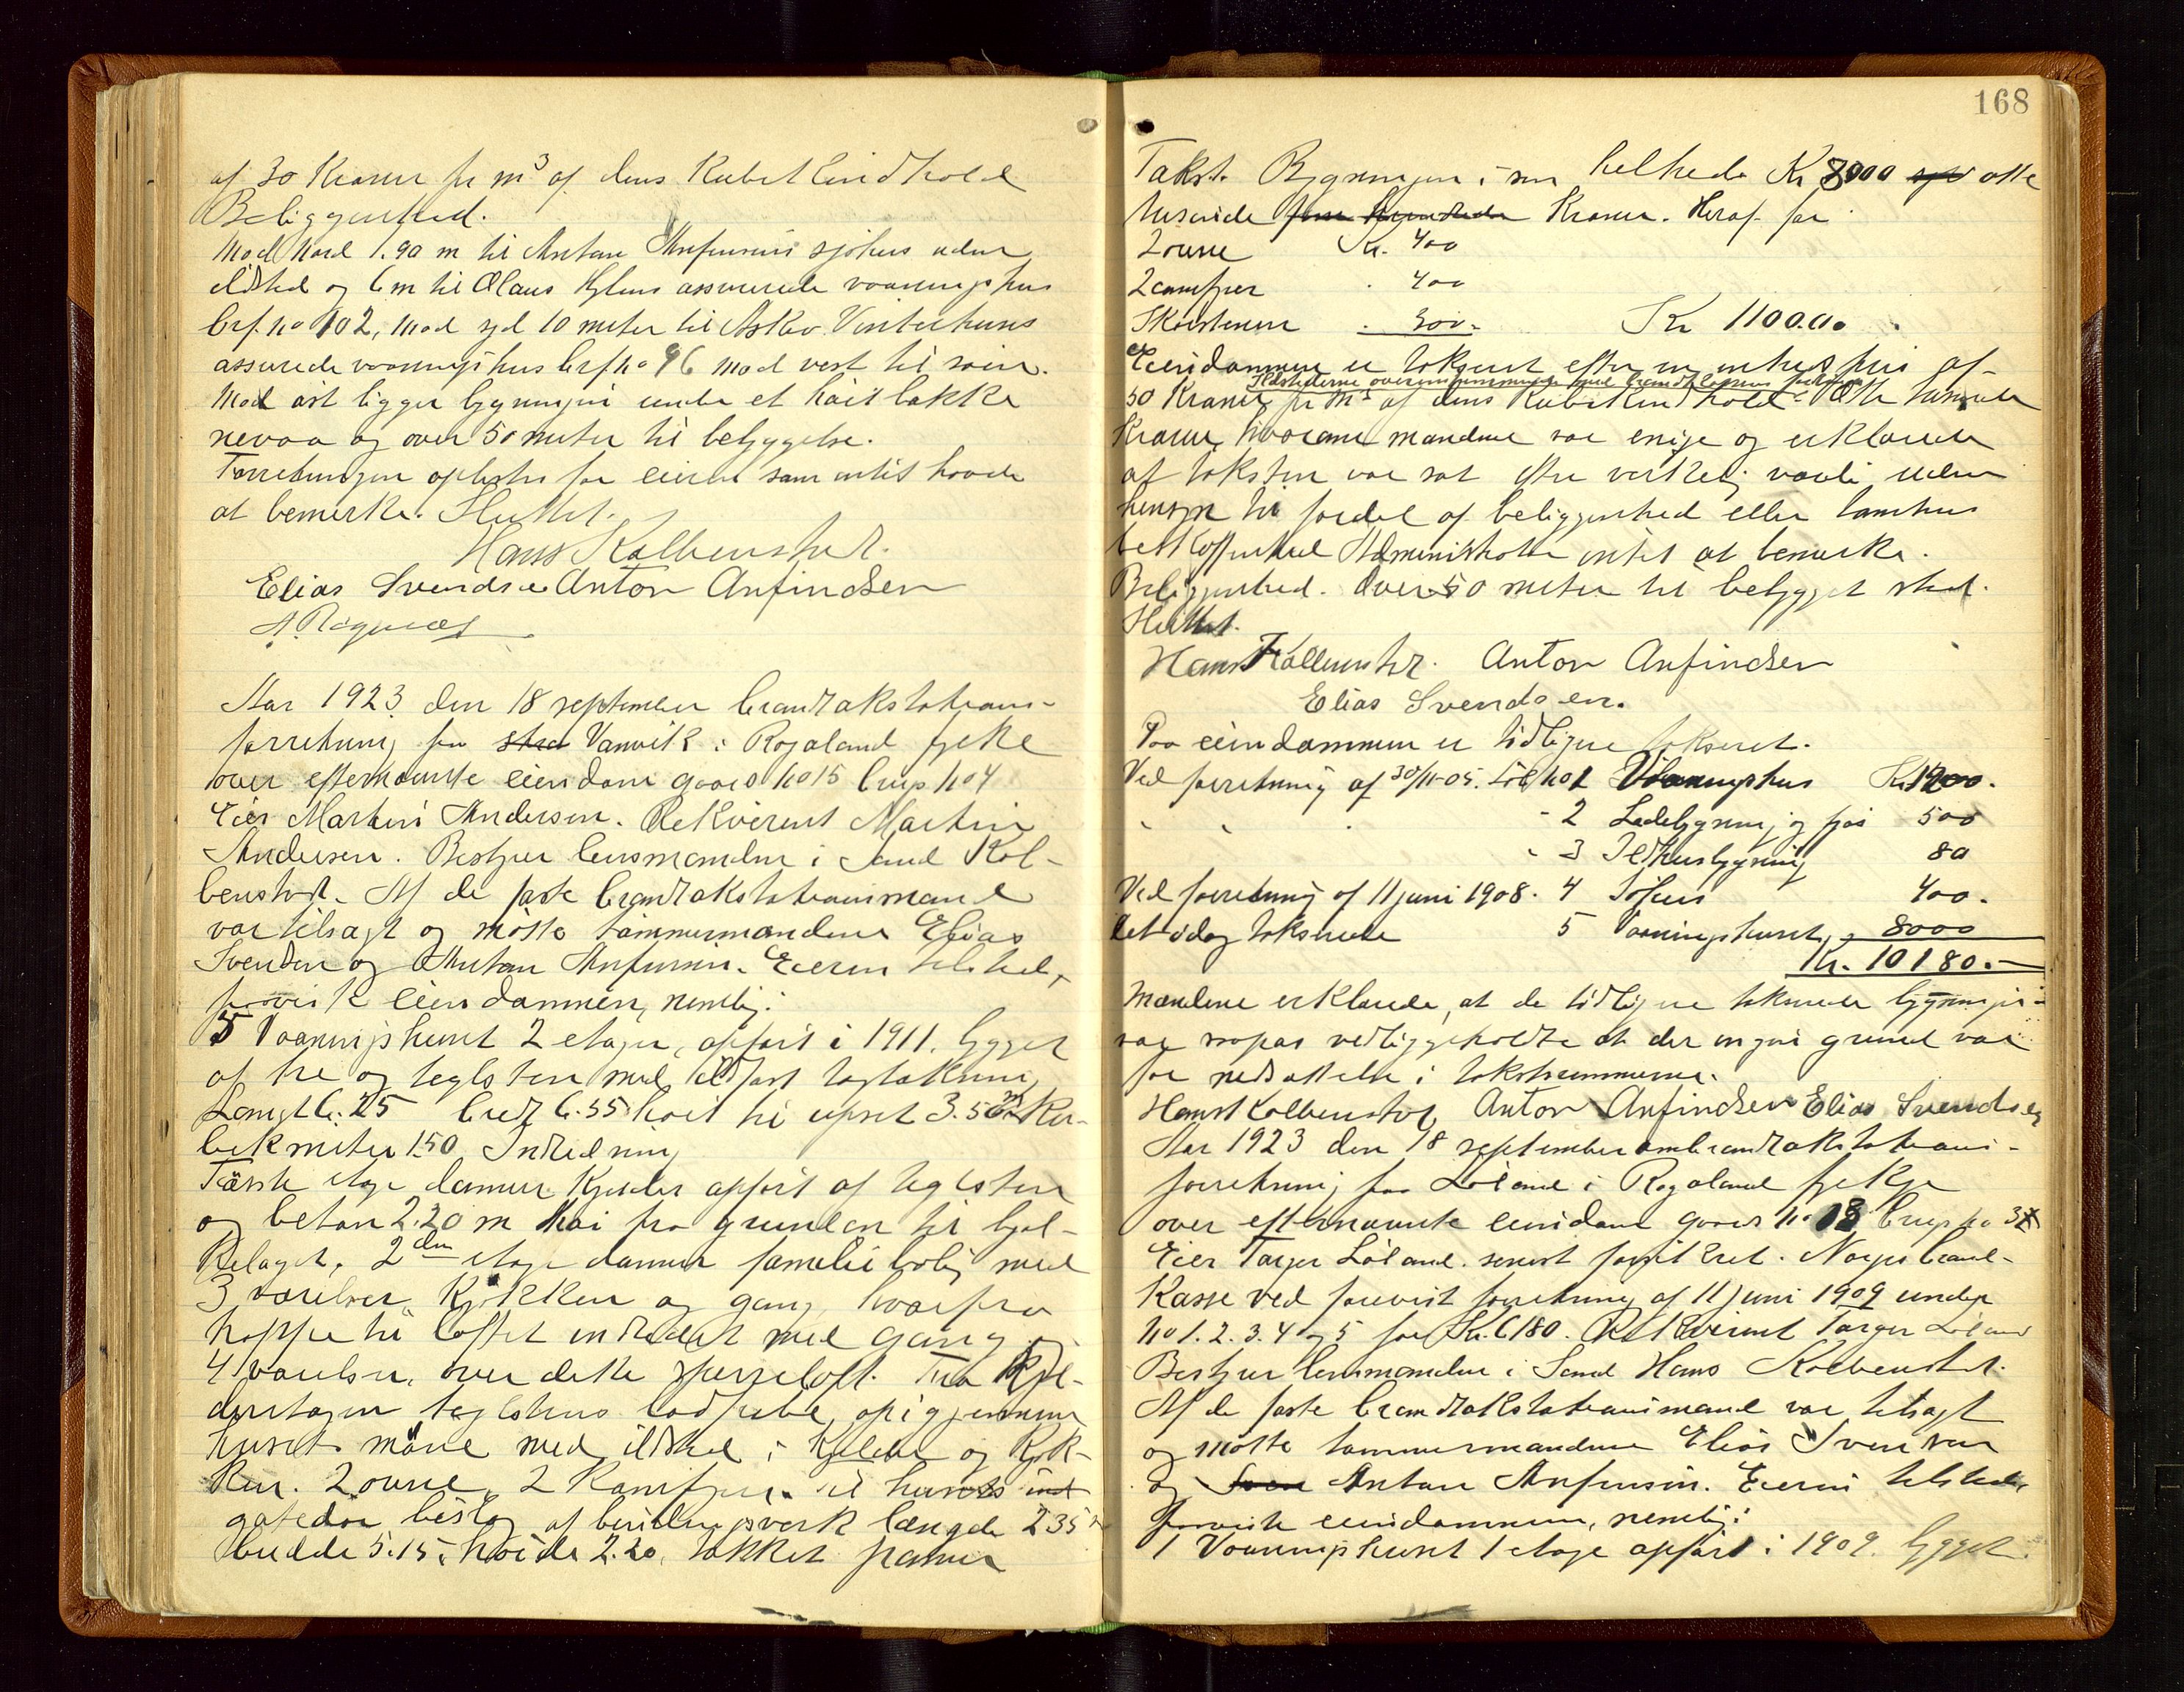 af 30 Kroner pr m³ af dens Kubikindhold
Beliggenhed.
Mod Nord 1.90 m til Anton Anfinsens sjøhus uden
ildsted og 6 m til Olaus assurerede vaaningshus
brf. no 102, mod syd 10 meter til Vinterhuns
assurede vaaningshus brf no 96 mod vest til søin.
Mod øst ligger bygningen under et høit bakke
nevaa og over 50 meter til bebyggelse.
Forretningen oplestes for eieren som intet havde
at bemerke. Sluttet.
Hans Kolbenstvedt.
Elias Svendsen Anton Anfindsen
A. Røgnæs
Aar 1923 den 18 september brandtakstations-
forretning paa Vanvik i Rogaland fylke
over efternævnte eiendom gaards no 15 brugs no 4
Eier Martin Andersen. Rekvirent Martin
Andersen. Bestyrer lensmanden i Sand Kol-
benstvedt. Af de faste brandtakstationsmænd
var tilsagt og møtte tømmermændene Elias
Svendsen og Anton Anfinsen. Eieren tilsted,
paaviste eiendommen, nemlig:
5 Vaaningshuset 2 etager, opført i 1911. bygget
af tre og teglsten med ildfast tagtækning
Længd 6.25 bred 6.55 høit til upset 3.50 m Ku-
bikmeter 150 Indredning
Første etage danner Kjelder opført af teglsten
og beton 2.20 m høi fra grunden til bjel-
kelaget. 2den etage danner familiebolig med
3 værelser, Kjøkken og gang hvorfra
trappe til loftet indredet med gang og
4 værelser, over dette sperreloft. Fra Kjel-
deretagen teglstens ladpibe op igjennem
husets møne med ildsted i Kjelder og Kjøk-
ken. 2 ovne, 2 Komfyrer. Til huset
gatedør bislag af bindingsverk længde 2.35 m
bredde 5.15, høide 2.20, tækket
168
Takst. Bygningen i sin helhed Kr 8000 otte
tusinde Kroner. Heraf for
2 ovne Kr. 400
2 comfyrer . 400
Skorstenen . 300.- Kr 1100.00
Eiendommen er takseret efter en enhedspris af
Ildstederne overensstemmende med brandtlovens forskrifter
50 Kroner pr m³ af dens Kubikindhold. Otte tusinde
Kroner, hvorom mændene var enige og erklærede
at taksten var sat efter verkelig værdi uden
hensyn til fordel af beliggenhed eller
beskaffenhed Administrator intet at bemerke.
Beliggenhed. Over 50 meter til bebygget sted.
Sluttet.
Hans Kolbenstvedt. Anton Anfindsen
Elias Svendsen.
Paa eiendommen er tidligere takseret.
Ved forretning af 30/11-05. no 1 Vaaningshus Kr 1200.
- 2 Ladebygning og fjøs 500
- 3 Ildhusbygning 80
Ved forretning af 11 juni 1908. 4 Søhus 400.
Det idag takserede 5 Vaaningshuset, 8000
Kr. 10180.-
Mændene erklærede, at de tidligere takserede bygninger
var saapas vedligeholdte at der ingen grund var
for nedsættelse i takstsummerne.
Hans Kolbenstvedt Anton Anfindsen Elias Svendsen
Aar 1923 den 18 september brandtakstations-
forretning paa Løland i Rogaland fylke
over efternævnte eiendom gaards no 18 brugs no 3
Eier Torger Løland. senest forsikret. Norges brand-
Kasse ved forevist forretning af 11 juni 1909 under
no 1. 2. 3. 4 og 5 for Kr. 6180. Rekvirent Torger Løland
Bestyrer lensmanden i Sand Hans Kolbenstvedt.
Af de faste brandtakstationsmænd var tilsagt
og møtte tømmermændene Elias Svendsen
og Anton Anfinsen. Eieren tilstede,
paaviste eiendommen, nemlig:
1 Vaaningshuset 1 etage opført i 1909. bygget